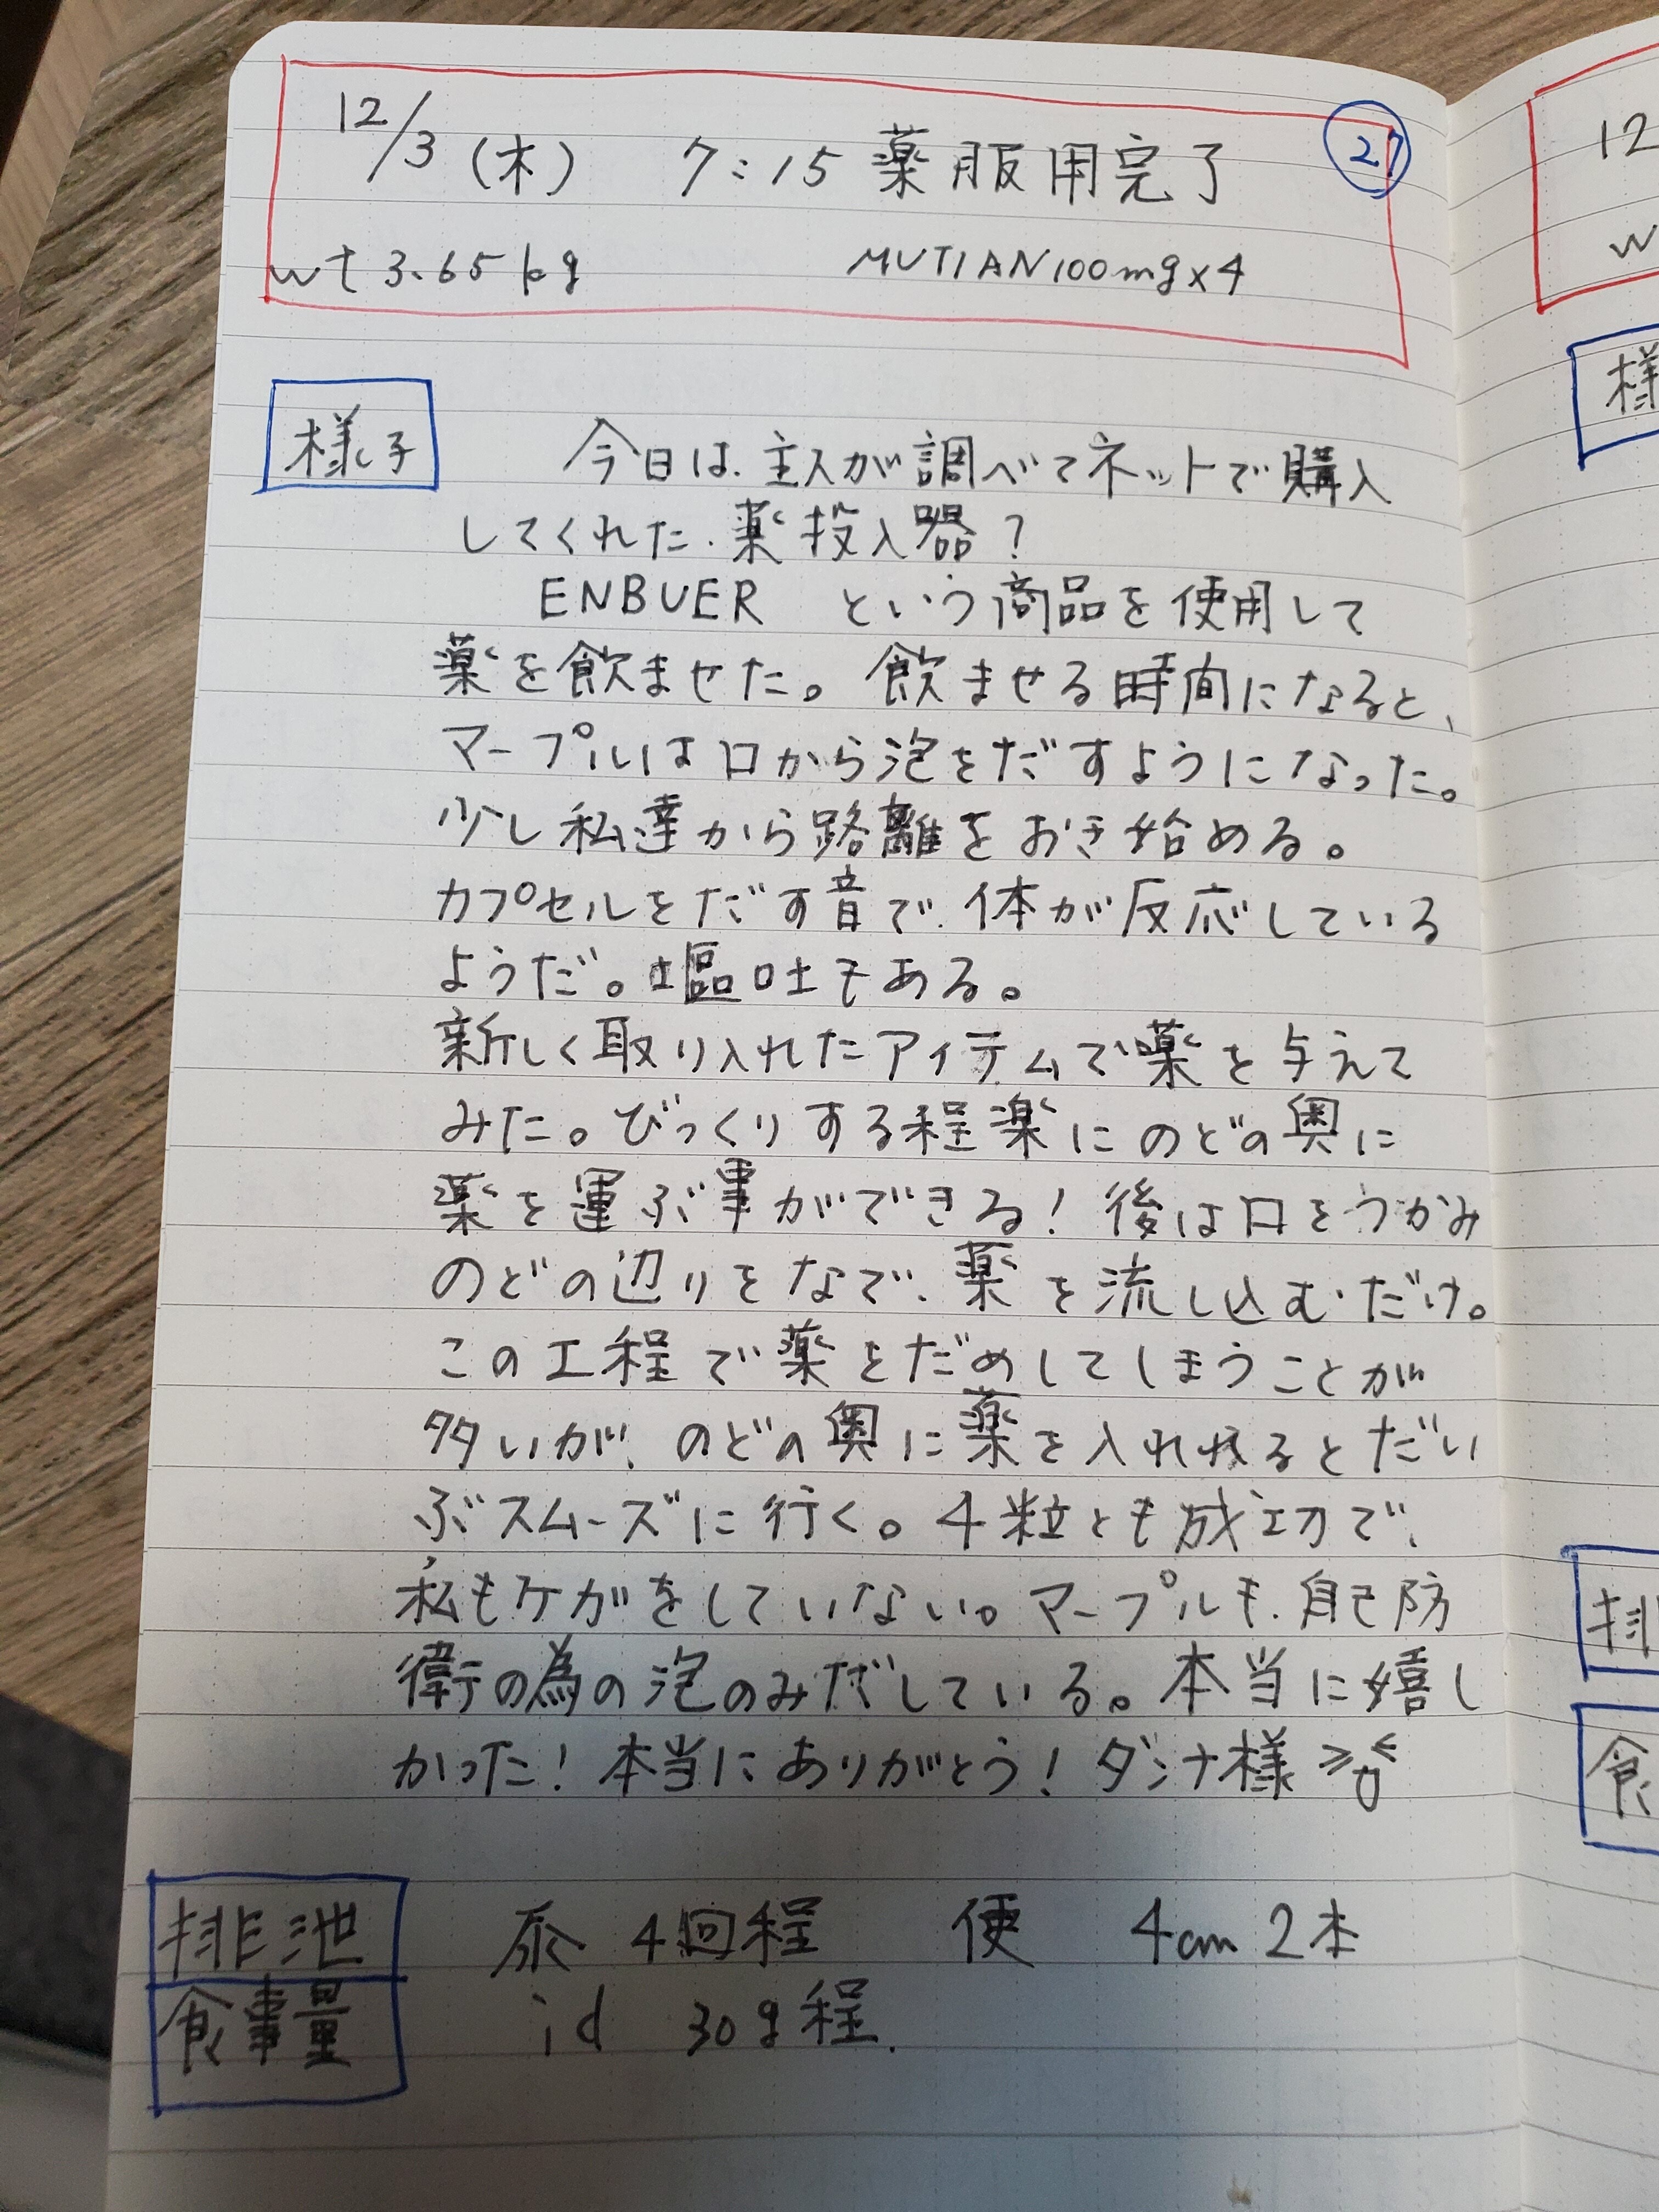 12/3 (木) 7:15 薬服用完了 27
wt 3.65kg MUTIAN100mg×4
様子 今日は、主人が調べてネットで購入
してくれた、薬投入器?
ENBUER という商品を使用して
薬を飲ませた。飲ませる時間になると、
マープルは口から泡をだすようになった。
少し私達から路離をおき始める。
カプセルをだす音で、体が反応している
ようだ。嘔吐もある。
新しく取り入れたアイテムで薬を与えて
みた。びっくりする程楽にのどの奥に
薬を運ぶ事ができる!後は口をつかみ
のどの辺りをなで、薬を流し込むだけ。
この工程で薬をだめしてしまうことが
多いが、のどの奥に薬を入れれるとだい
ぶスムーズに行く。4粒とも成功で、
私もケガをしていない。マープルも、自己防
衛の為の泡のみだしている。本当に嬉し
かった!本当にありがとう!ダンナ様
排池 尿 4回程 便 4cm 2本
食事量 id 30g程.
12
w
様
排
食